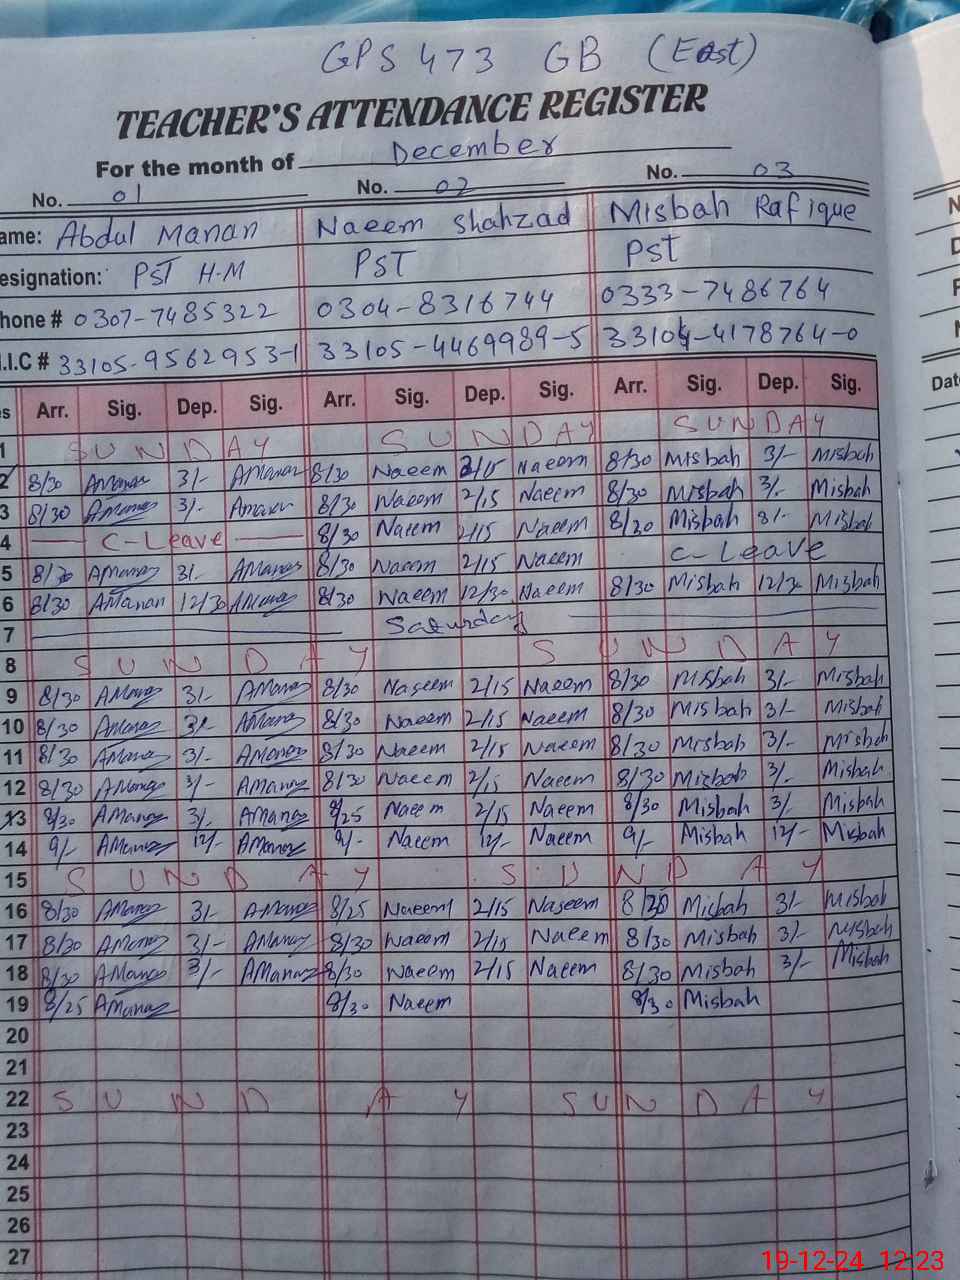 GPS 473 GB (East)
TEACHER'S ATTENDANCE REGISTER
For the month of December
No. 01 No. 02 No. 03
ame: Abdul Manan Naeem Shahzad Misbah Rafique
esignation: PST H-M PST PST
hone # 0307-7485322 0304-8316744 0333-7486764
.I.C # 33105-9562953-1 33105-4469989-5 33104-4178764-0
es Arr. Sig. Dep. Sig. Arr. Sig. Dep. Sig. Arr. Sig. Dep. Sig. Date
1 SUNDAY SUNDAY SUNDAY
2 8/30 AManan 3/- AManan 8/30 Naeem 2/15 Naeem 8/30 Misbah 3/- Misbah
3 8/30 AManan 3/- AManan 8/30 Naeem 2/15 Naeem 8/30 Misbah 3/- Misbah
4 C-Leave 8/30 Naeem 2/15 Naeem 8/30 Misbah 3/- Misbah
5 8/30 AManan 3/- AManan 8/30 Naeem 2/15 Naeem C-Leave
6 8/30 AManan 12/30 AManan 8/30 Naeem 12/30 Naeem 8/30 Misbah 12/30 Misbah
7 Saturday
8 SUNDAY SUNDAY
9 8/30 AManan 3/- AManan 8/30 Naeem 2/15 Naeem 8/30 Misbah 3/- Misbah
10 8/30 AManan 3/- AManan 8/30 Naeem 2/15 Naeem 8/30 Misbah 3/- Misbah
11 8/30 AManan 3/- AManan 8/30 Naeem 2/15 Naeem 8/30 Misbah 3/- Misbah
12 8/30 AManan 3/- AManan 8/30 Naeem 2/15 Naeem 8/30 Misbah 3/- Misbah
13 8/30 AManan 3/- AManan 8/25 Naeem 2/15 Naeem 8/30 Misbah 3/- Misbah
14 9/- AManan 12/- AManan 9/- Naeem 12/- Naeem 9/- Misbah 12/- Misbah
15 SUNDAY SUNDAY
16 8/30 AManan 3/- AManan 8/25 Naeem 2/15 Naseem 8/30 Misbah 3/- Misbah
17 8/30 AManan 3/- AManan 8/30 Naeem 2/15 Naeem 8/30 Misbah 3/- Misbah
18 8/30 AManan 3/- AManan 8/30 Naeem 2/15 Naeem 8/30 Misbah 3/- Misbah
19 8/25 AManan 8/30 Naeem 8/30 Misbah
20
21
22 SUNDAY SUNDAY
23
24
25
26
27
19-12-24 12:23